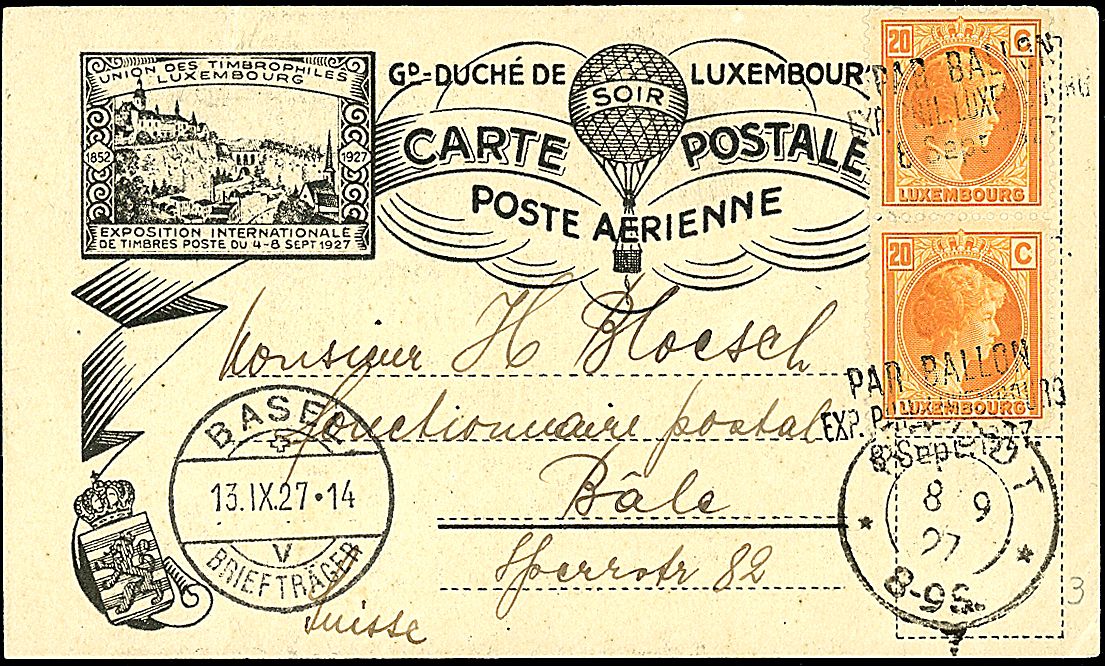 UNION DES TIMBROPHILES
LUXEMBOURG
1852 1927
EXPOSITION INTERNATIONALE
DE TIMBRES POSTE DU 4-8 SEPT 1927
GD-DUCHÉ DE LUXEMBOUR
SOIR
CARTE POSTALE
POSTE AERIENNE
20 C
PAR BALLON
8 Sept
LUXEMBOURG
20 C
PAR BALLON
EXP.
LUXEMBOURG
8 Sept
Monsieur H Bloesch
fonctionnaire postal
Bâle
Sperrstr 82
Suisse
BASEL
13.IX.27·14
V
BRIEFTRÄGER
8 9
27
8-9S.
3